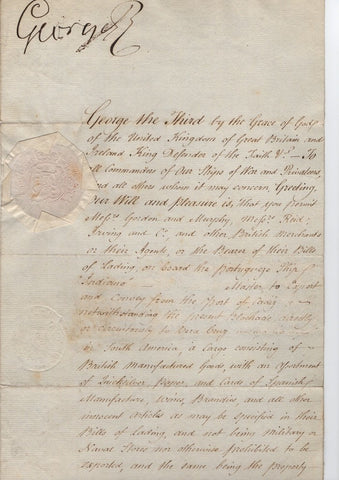 George R
George the Third by the Grace of God
of the United Kingdom of Great Britain and
Ireland King Defender of the Faith &c. — To
all Commanders of Our Ships of War and Privateers,
and all others whom it may concern Greeting,
Our Will and pleasure is, that you permit
Messrs. Gordon and Murphy, Messrs. Reid
Irving and Co. and other British Merchants
or their Agents, or the Bearer of their Bills
of Lading, on board the Portuguese Ship
Master, to Export
and Convey from the Port of Cadiz
notwithstanding the present Blockade directly
or Circuitously to Vera Cruz
in South America, a Cargo consisting of
British Manufactured Goods, with an Assortment
of Quicksilver, Paper, and Cards of Spanish
Manufacture, Wines, Brandies, and all other
innocent Articles as may be specified in their
Bills of Lading, and not being Military or
Naval Stores nor otherwise prohibited to be
exported, and the same being the property